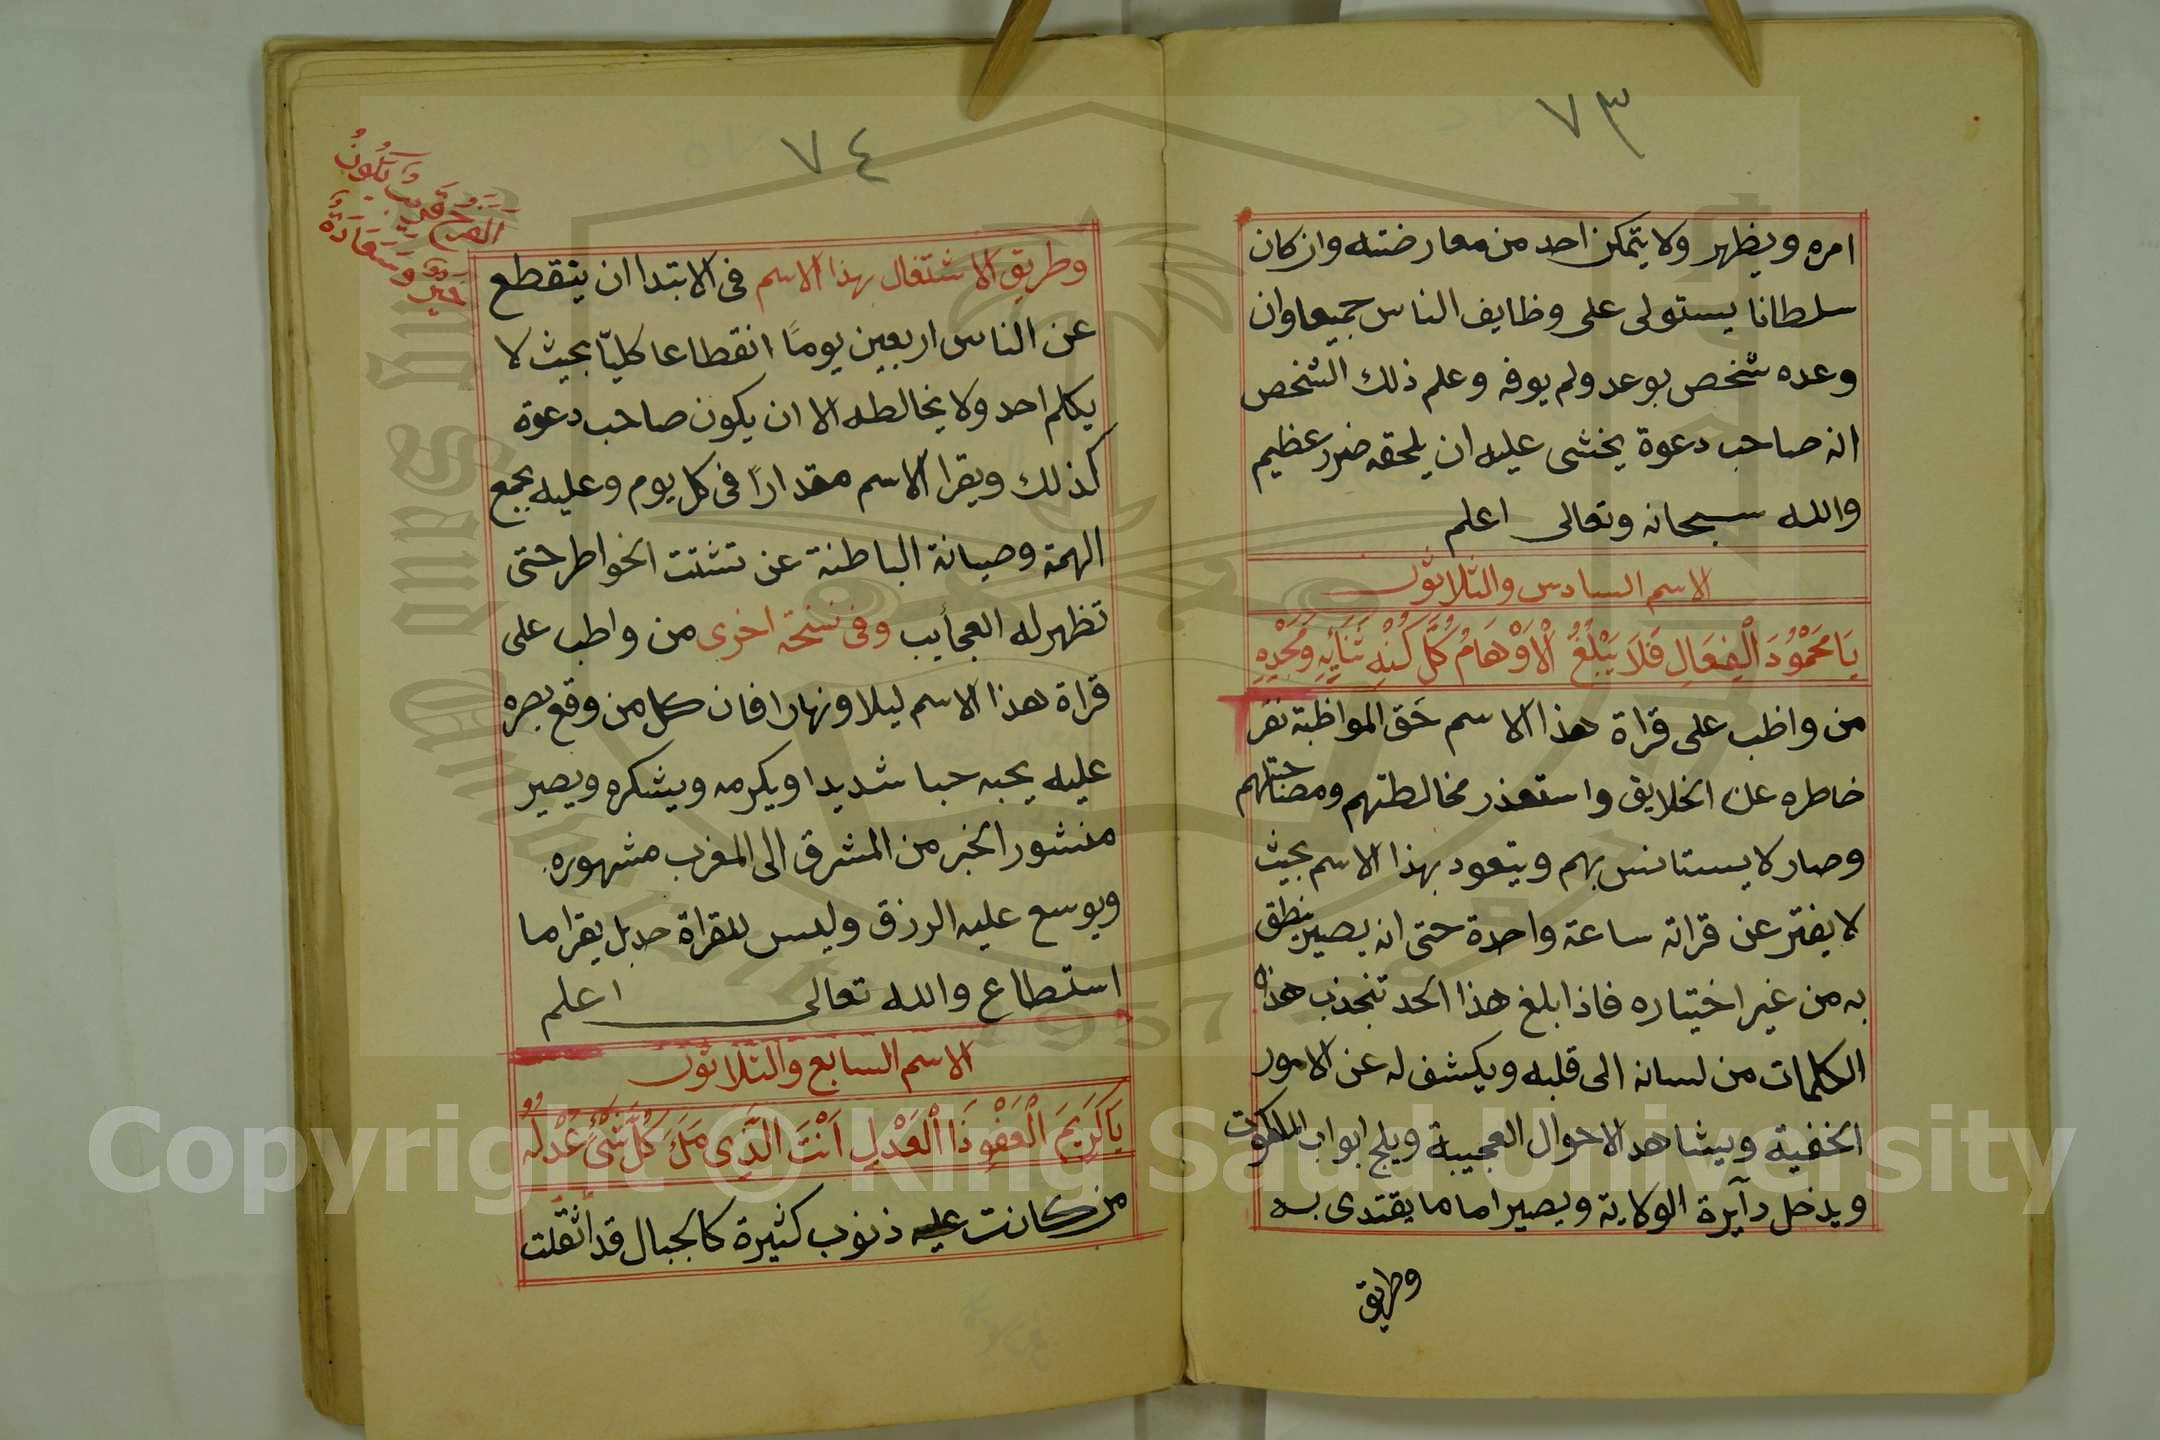 ٧٣
امره ويظهر ولا يتمكن احد من معارضته وان كان
سلطانا يستولى على وظايف الناس جميعا وان
وعده شخص بوعد ولم يوفه وعلم ذلك الشخص
انه صاحب دعوة يخشى عليه ان يلحقه ضرر عظيم
والله سبحانه وتعالى اعلم
الاسم السادس والثلاثون
يَا مَحْمُودَ الْفِعَالِ فَلَا يَبْلُغُ الْأَوْهَامُ كُلَّ كُنْهِ ثَنَائِهِ وَمَجْدِهِ
من واظب على قراة هذا الاسم حَق المواظبة نفر
خاطره عن الخلايق واستعذر مخالطتهم ومصاحبتهم
وصار لا يستانس بهم ويتعود بهذا الاسم بحيث
لا يفتر عن قراته ساعة واحدة حتى انه يصير ينطق
به من غير اختياره فاذا بلغ هذا الحد تنجذب هذه
الكلمات من لسانه الى قلبه ويكشف له عن الامور
الخفية ويشاهد الاحوال العجيبة ويلج ابواب الملكوت
ويدخل دآيرة الولاية ويصير اماما يقتدى به
وطريق
٧٤
وَيَكُونُ
الفرج قريب
خير وسعادة
وطريق الاشتغال بهذا الاسم فى الابتدا ان ينقطع
عن الناس اربعين يومًا انقطاعا كليّا بحيث لا
يكلم احد ولا يخالطه الا ان يكون صاحب دعوة
كذلك ويقرا الاسم مقدارًا فى كل يوم وعليه بجمع
الهمة وصيانة الباطنة عن تشتت الخواطر حتى
تظهر له العجأيب وفى نسخة اخرى من واظب على
قراة هذا الاسم ليلا ونهارا فان كل من وقع بصره
عليه يحبه حبا شديدا ويكرمه ويشكره ويصير
منشور الخبر من المشرق الى المغرب مشهوره
ويوسع عليه الرزق وليس للقراة حد بل يقرا ما
استطاع والله تعالى اعلم
الاسم السابع والثلاثون
يَا كَرِيمَ الْعَفْوِ ذَا الْعَدْلِ اَنْتَ الَّذِى مَلَأَ كُلَّ شَىْءٍ عَدْلُهُ
من كانت عليه ذنوب كثيرة كالجبال قد أثقلت
Copyright © King Saud University
1957